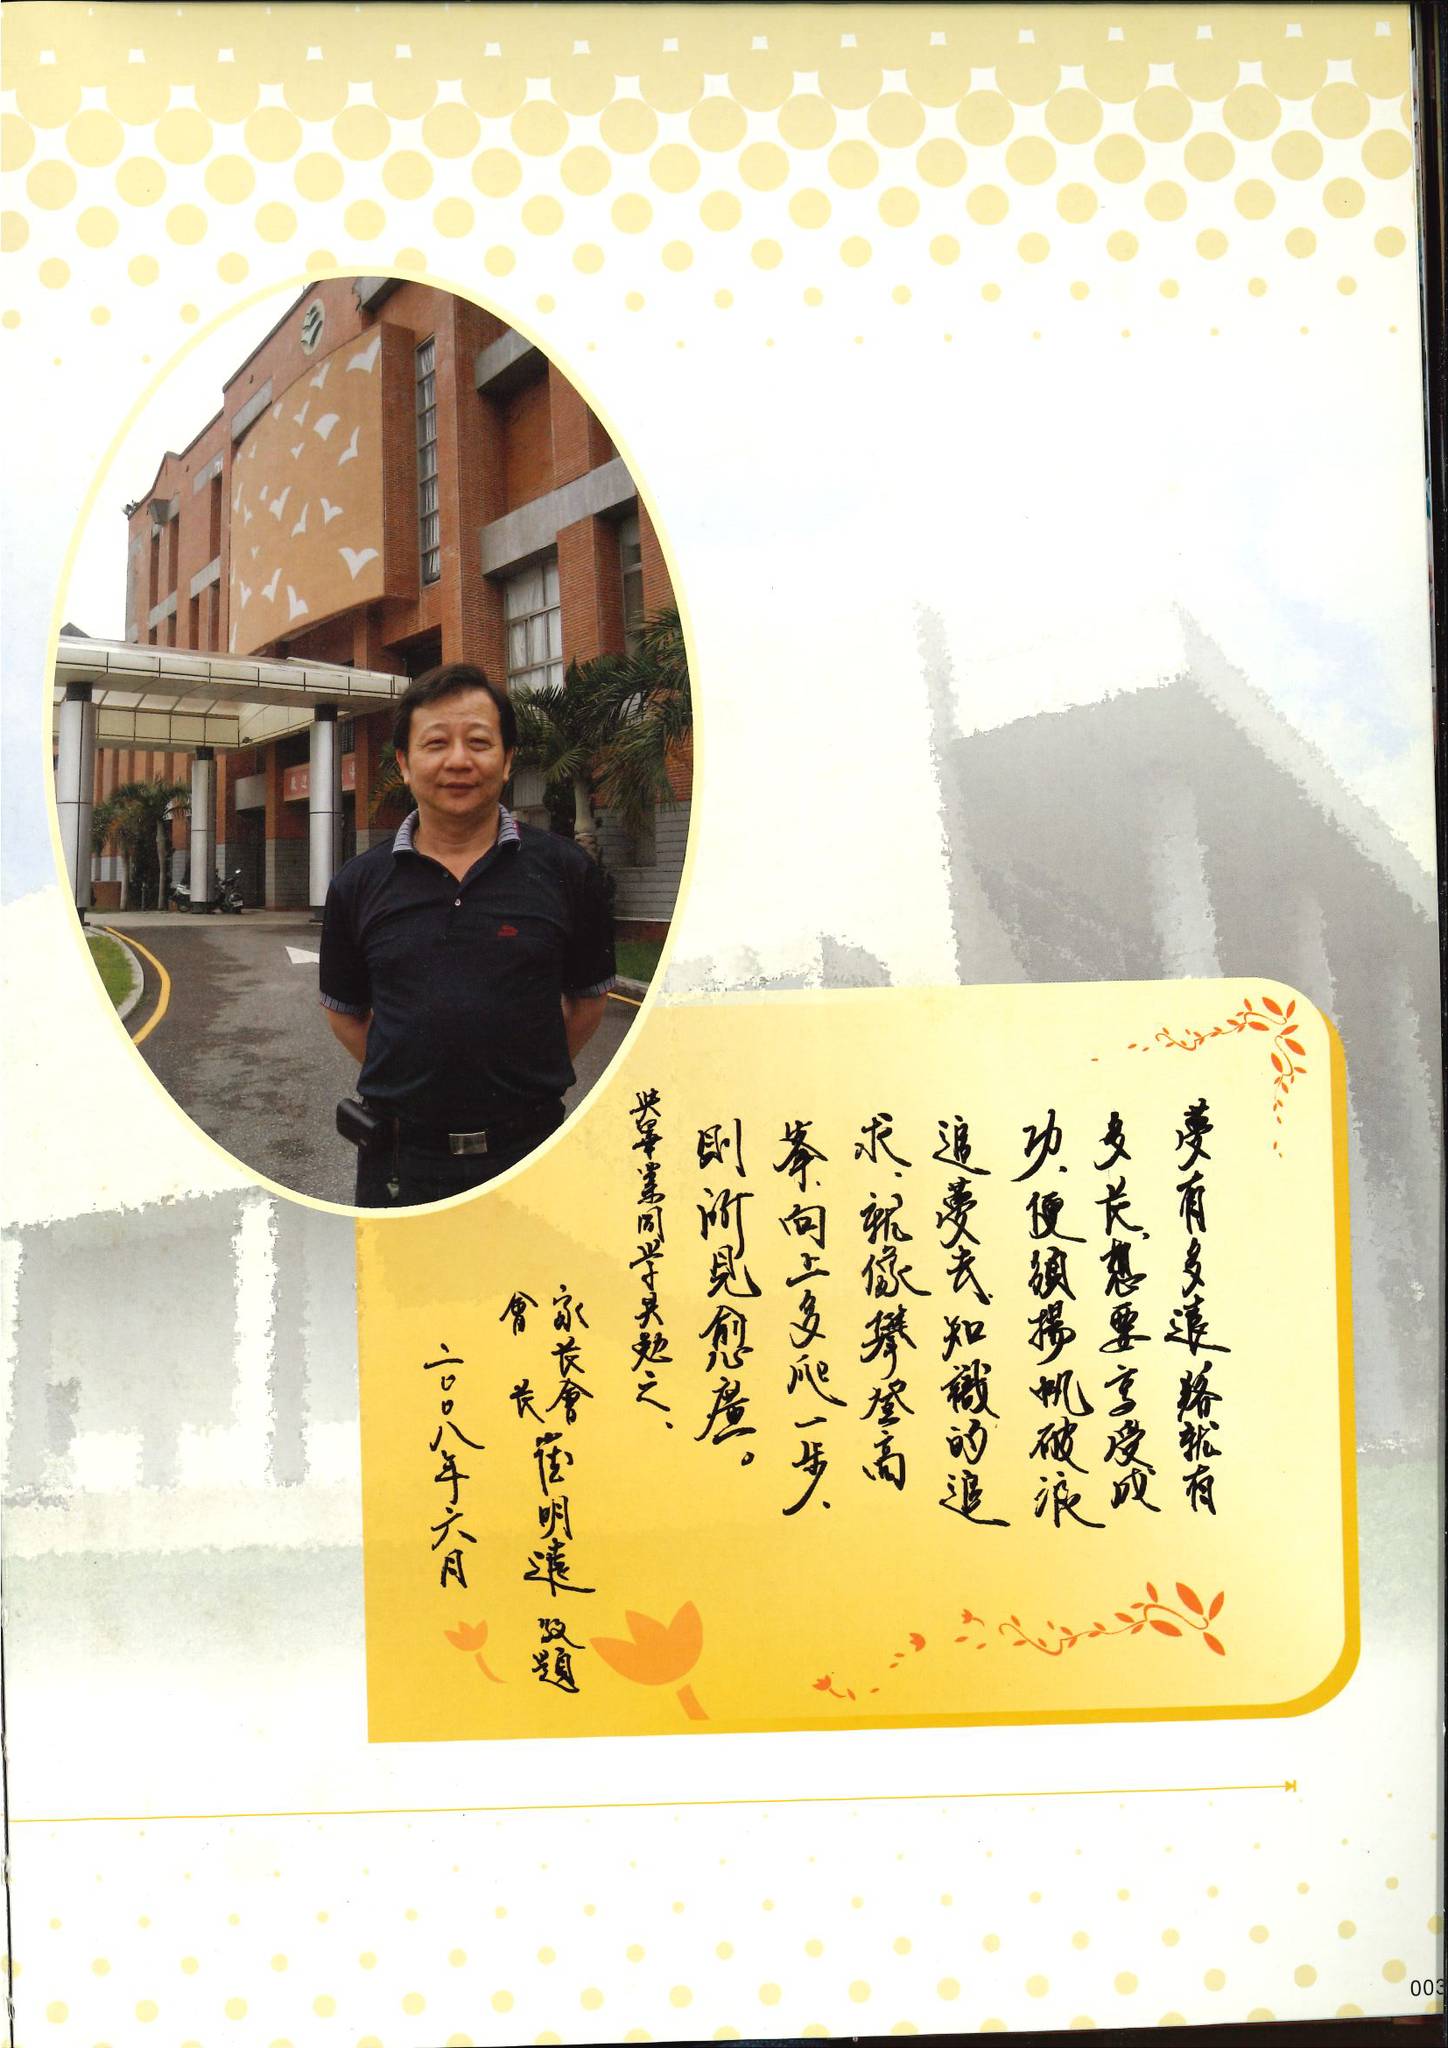 夢有多遠路就有
多長、想要享受成
功、便須揚帆破浪
追夢去、知識的追
求、就像攀登高
峯、向上多爬一步、
則所見愈廣。
與畢業同學共勉之、
家長會
會長
崔明遠 敬題
二〇〇八年六月
003